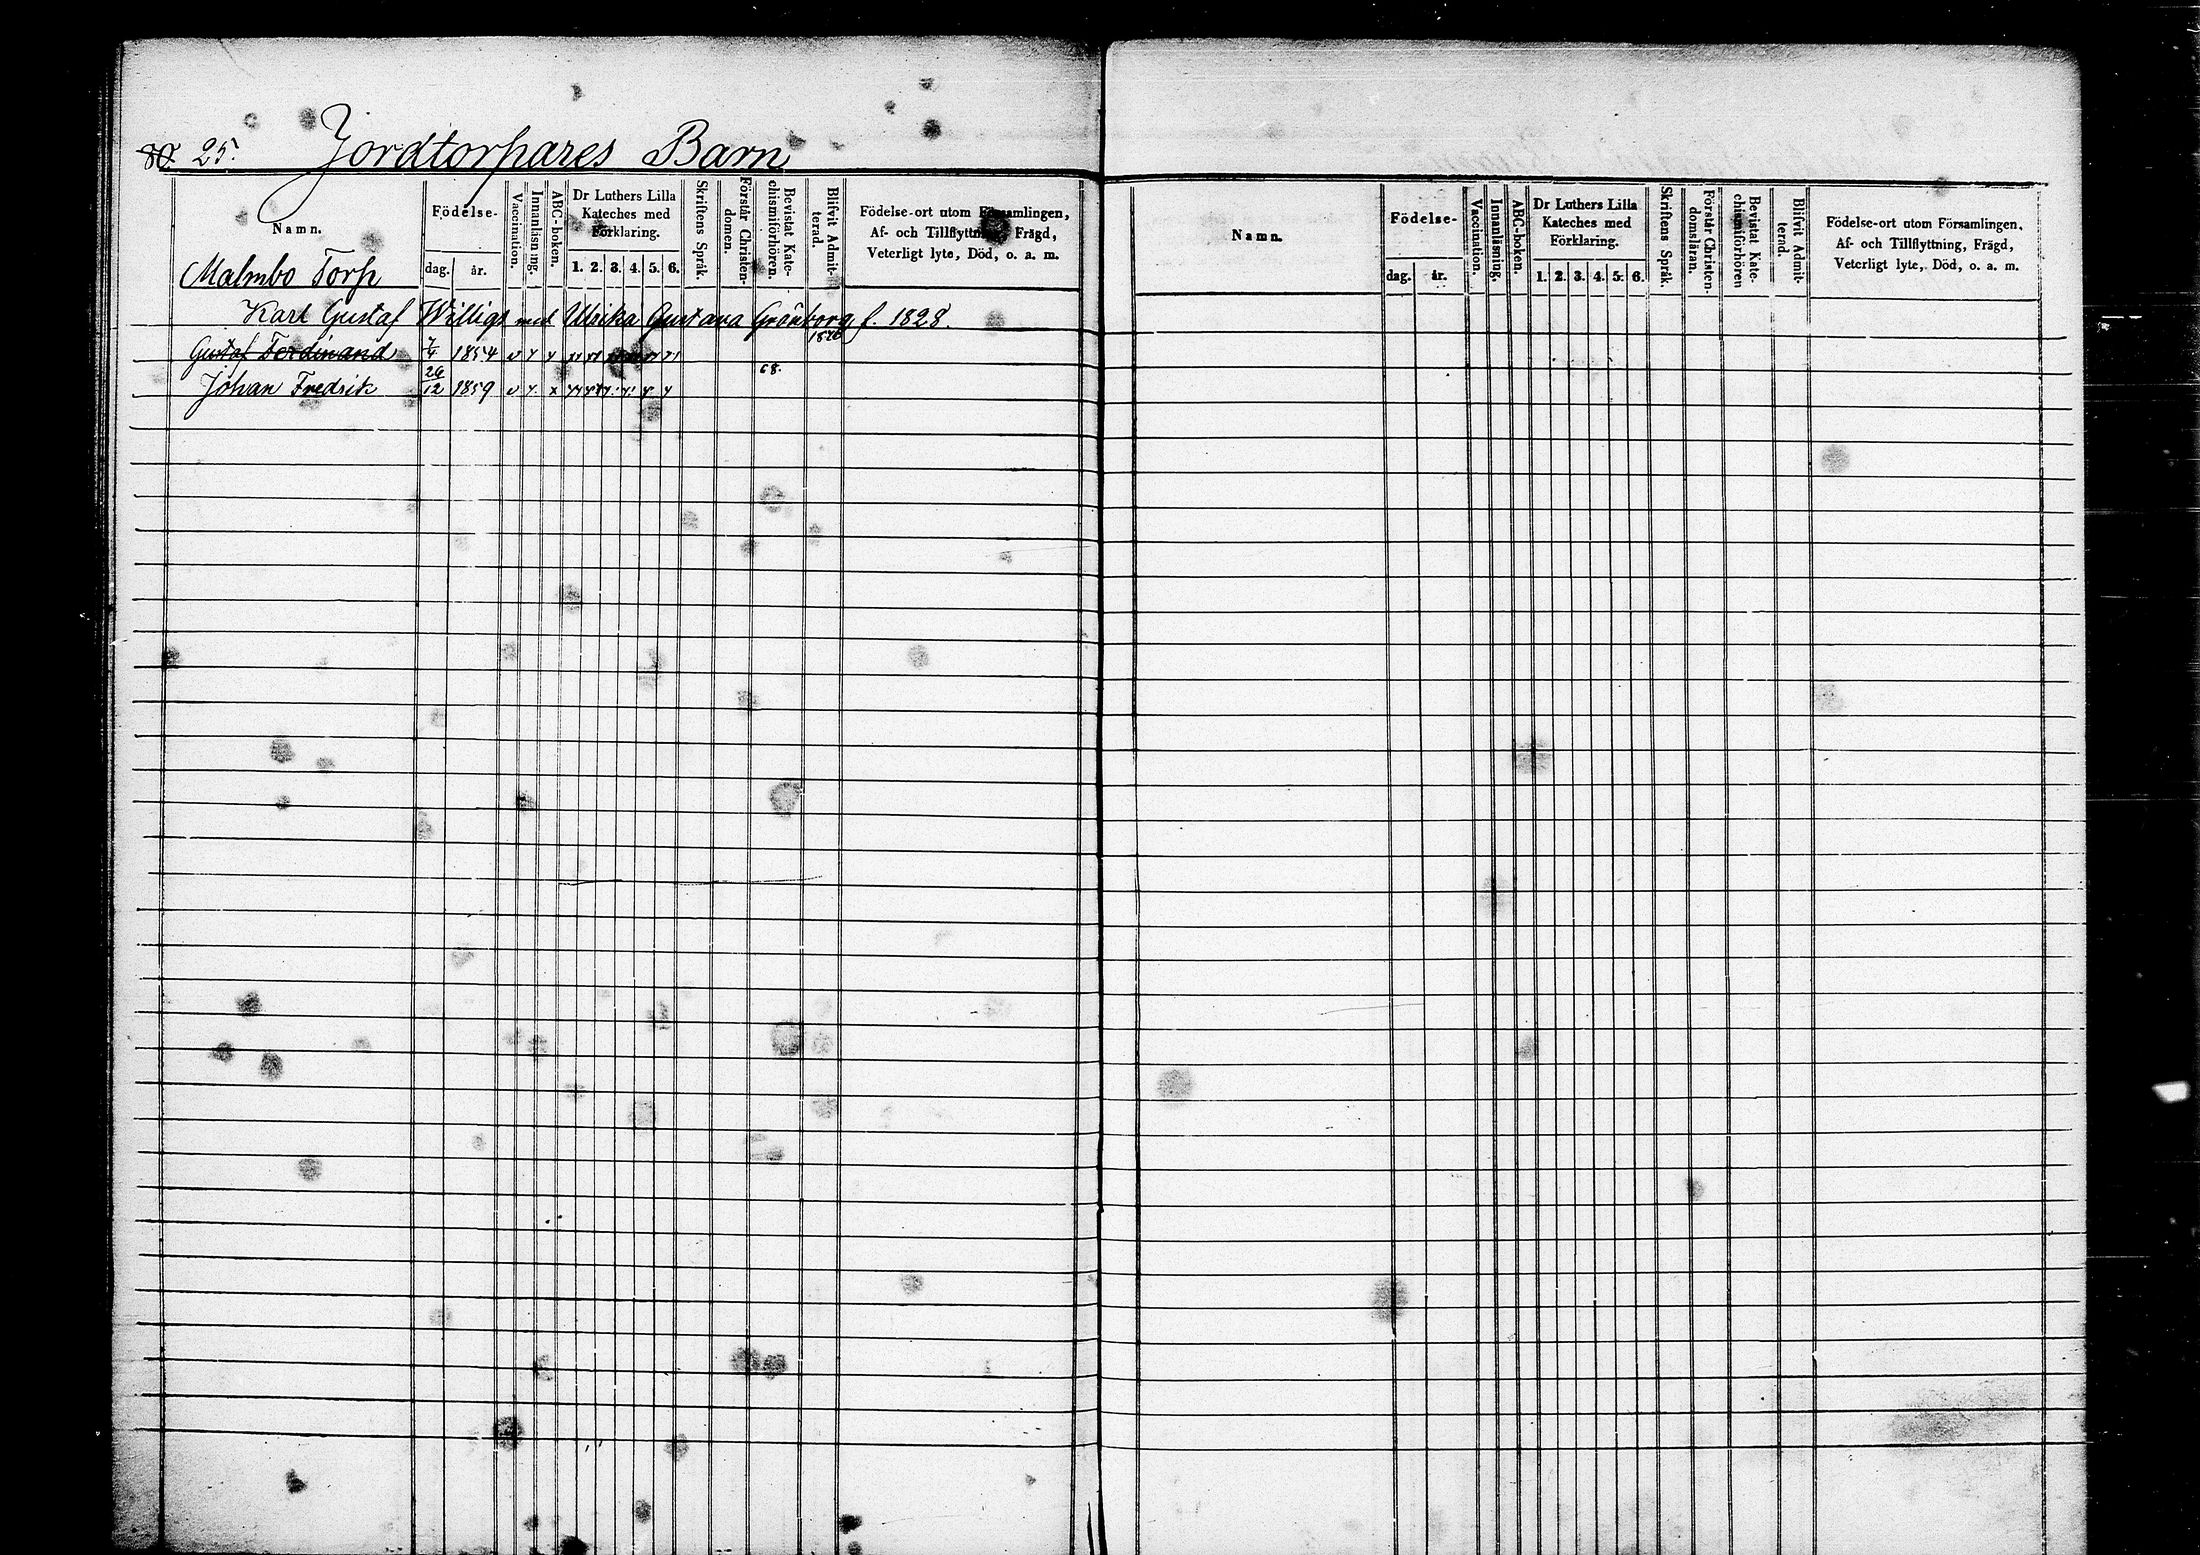 25. Jordtorpares Barn
Namn.
Födelse-
dag. år.
Vaccination.
Innanläsning.
ABC-boken.
Dr Luthers Lilla
Kateches med
Förklaring.
1. 2. 3. 4. 5. 6.
Skriftens Språk.
Förstår Christen-
domen.
Bevistat Kate-
chismiförhören.
Blifvit Admit-
terad.
Födelse-ort utom Församlingen,
Af- och Tillflyttning, Frägd,
Veterligt lyte, Död, o. a. m.
Malmbo Torp
Karl Gustaf Willigs med Ulrika Gustava Grönborg f. 1828.
Gustaf Ferdinand 7/4 1854 v
Johan Fredrik 26/12 1859 v 68.
Namn.
Födelse-
dag. år.
Vaccination.
Innanläsning.
ABC-boken.
Dr Luthers Lilla
Kateches med
Förklaring.
1. 2. 3. 4. 5. 6.
Skriftens Språk.
Förstår Christen-
domsläran.
Bevistat Kate-
chismiförhören
Blifvit Admit-
terad.
Födelse-ort utom Församlingen.
Af- och Tillflyttning, Frägd,
Veterligt lyte, Död, o. a. m.